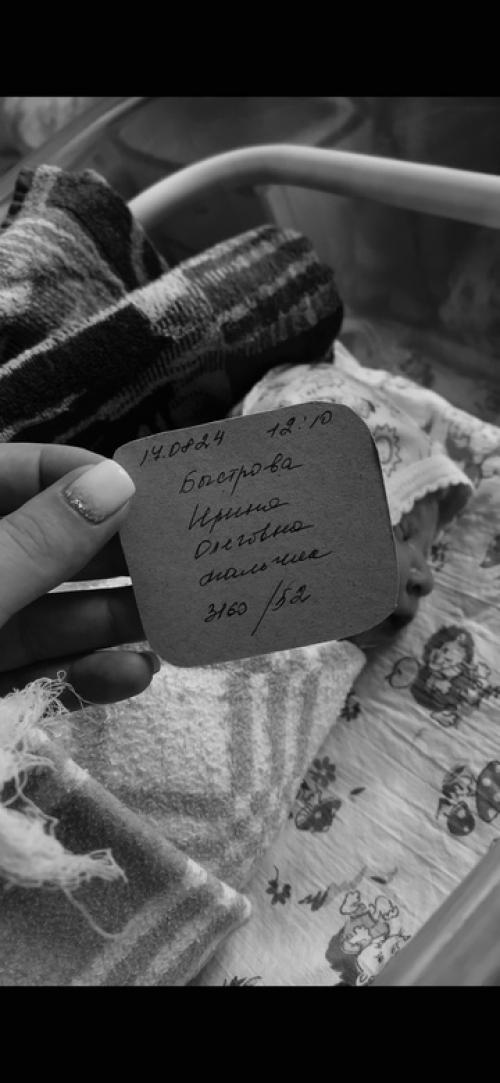 17.08.24 12:10
Быстрова
Ирина
Олеговна
мальчик
3160/52